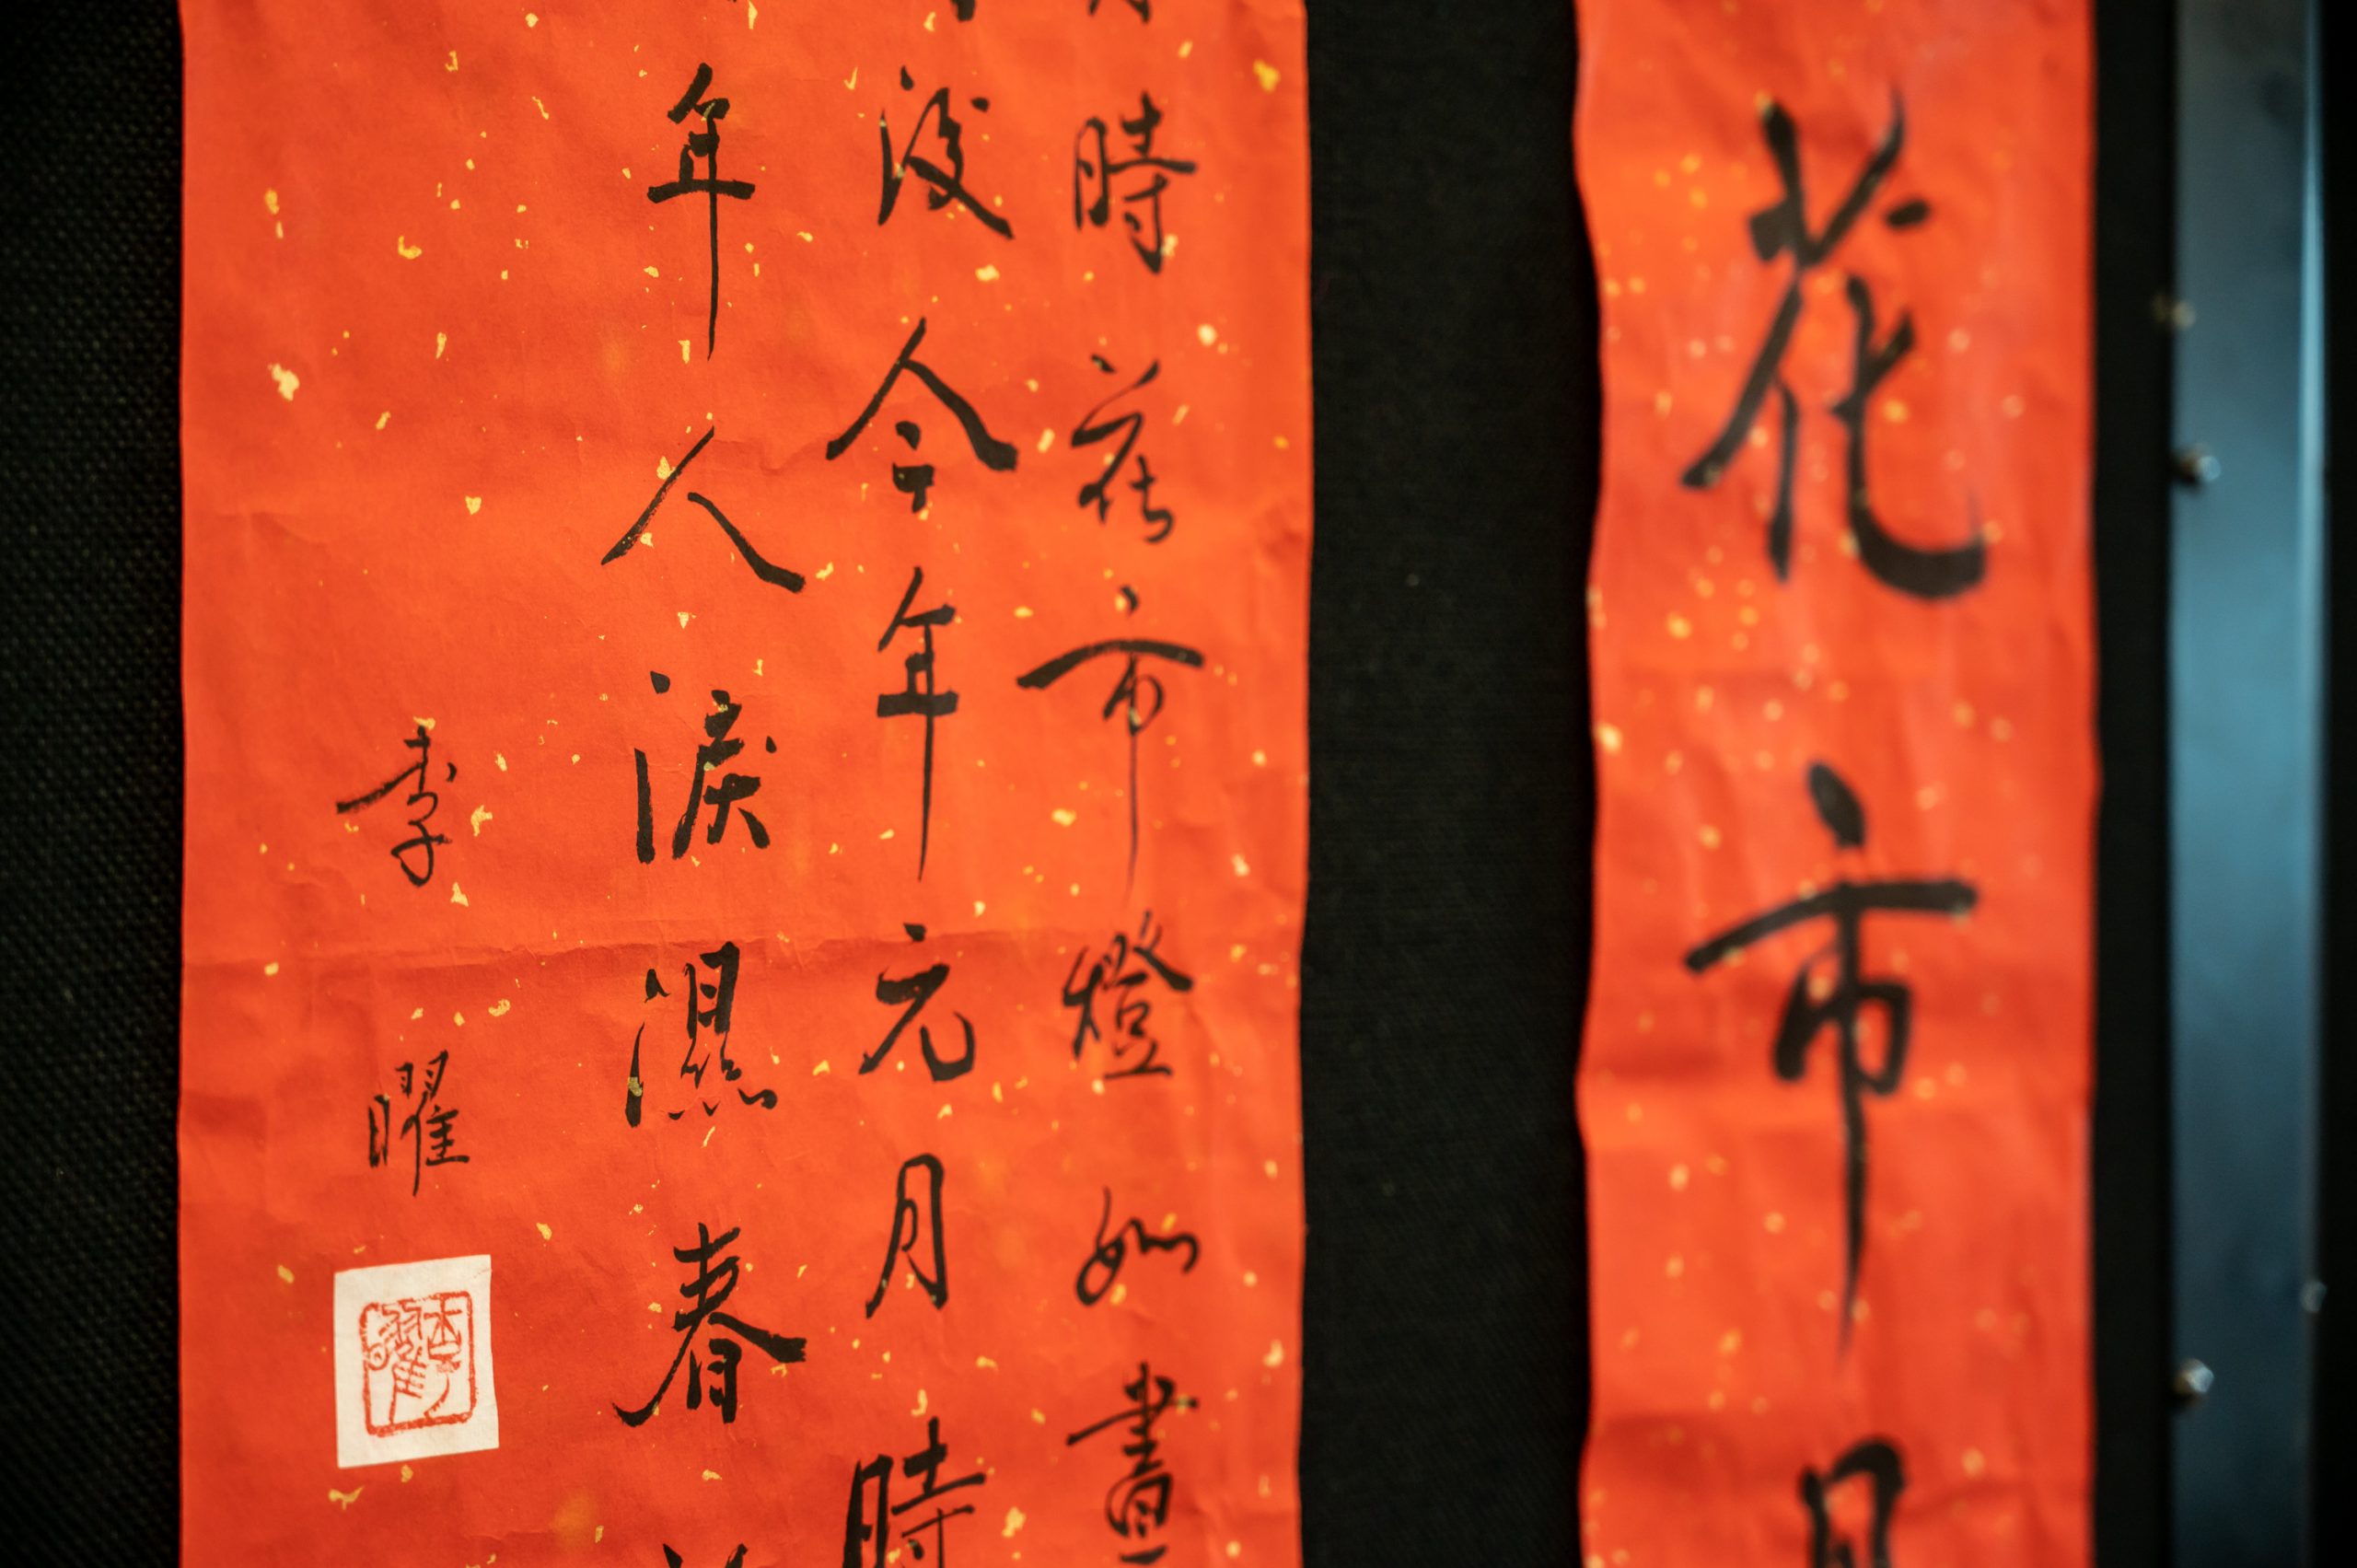 花市
時花市燈如晝
後今年元月時
年人淚濕春
李曜
李曜